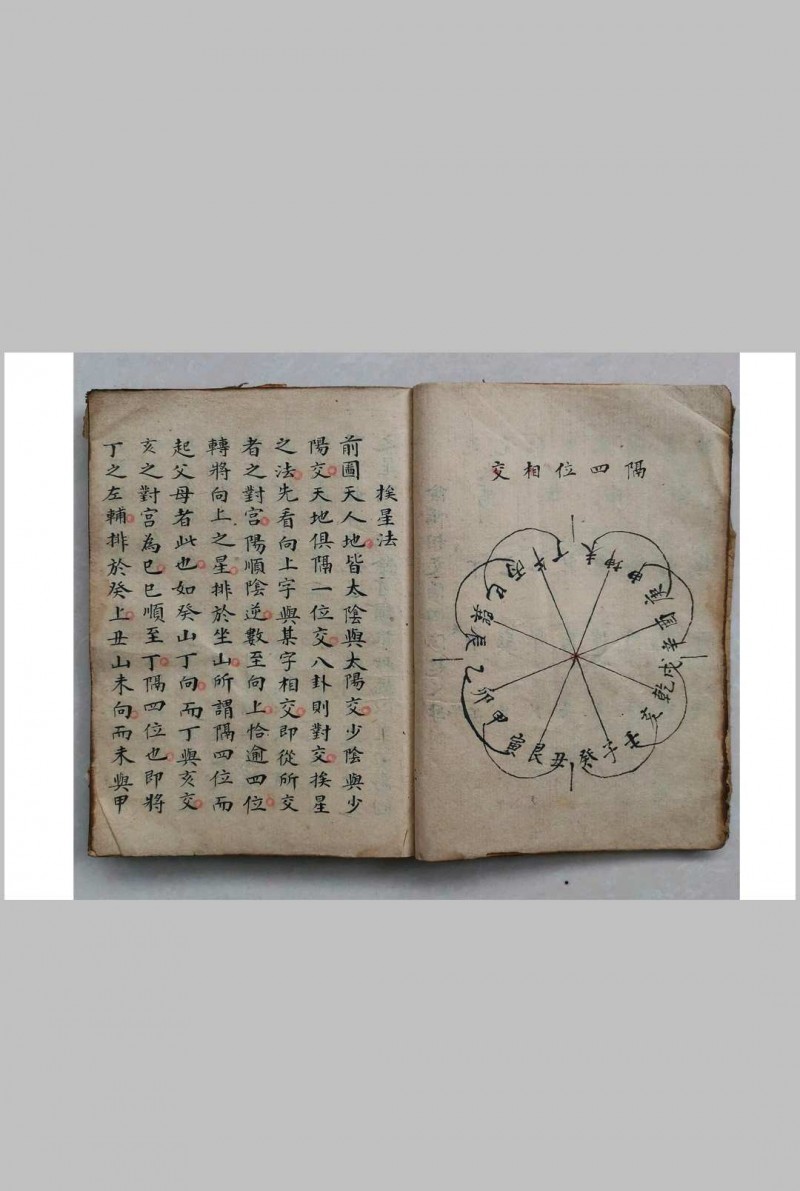 隔四位相交
子癸丑艮寅甲卯乙辰巽巳丙午丁未坤申庚酉辛戌乾亥壬
挨星法
前圖天人地皆太陰與太陽交少陰與少
陽交天地俱隔一位交八卦則對交挨星
之法先看向上字與某字相交即從所交
者之對宮陽順陰逆數至向上恰逾四位
轉將向上之星排於坐山所謂隔四位而
起父母者此也如癸山丁向而丁與亥交
亥之對宮為巳巳順至丁隔四位也即將
丁之左輔排於癸上丑山未向而未與甲